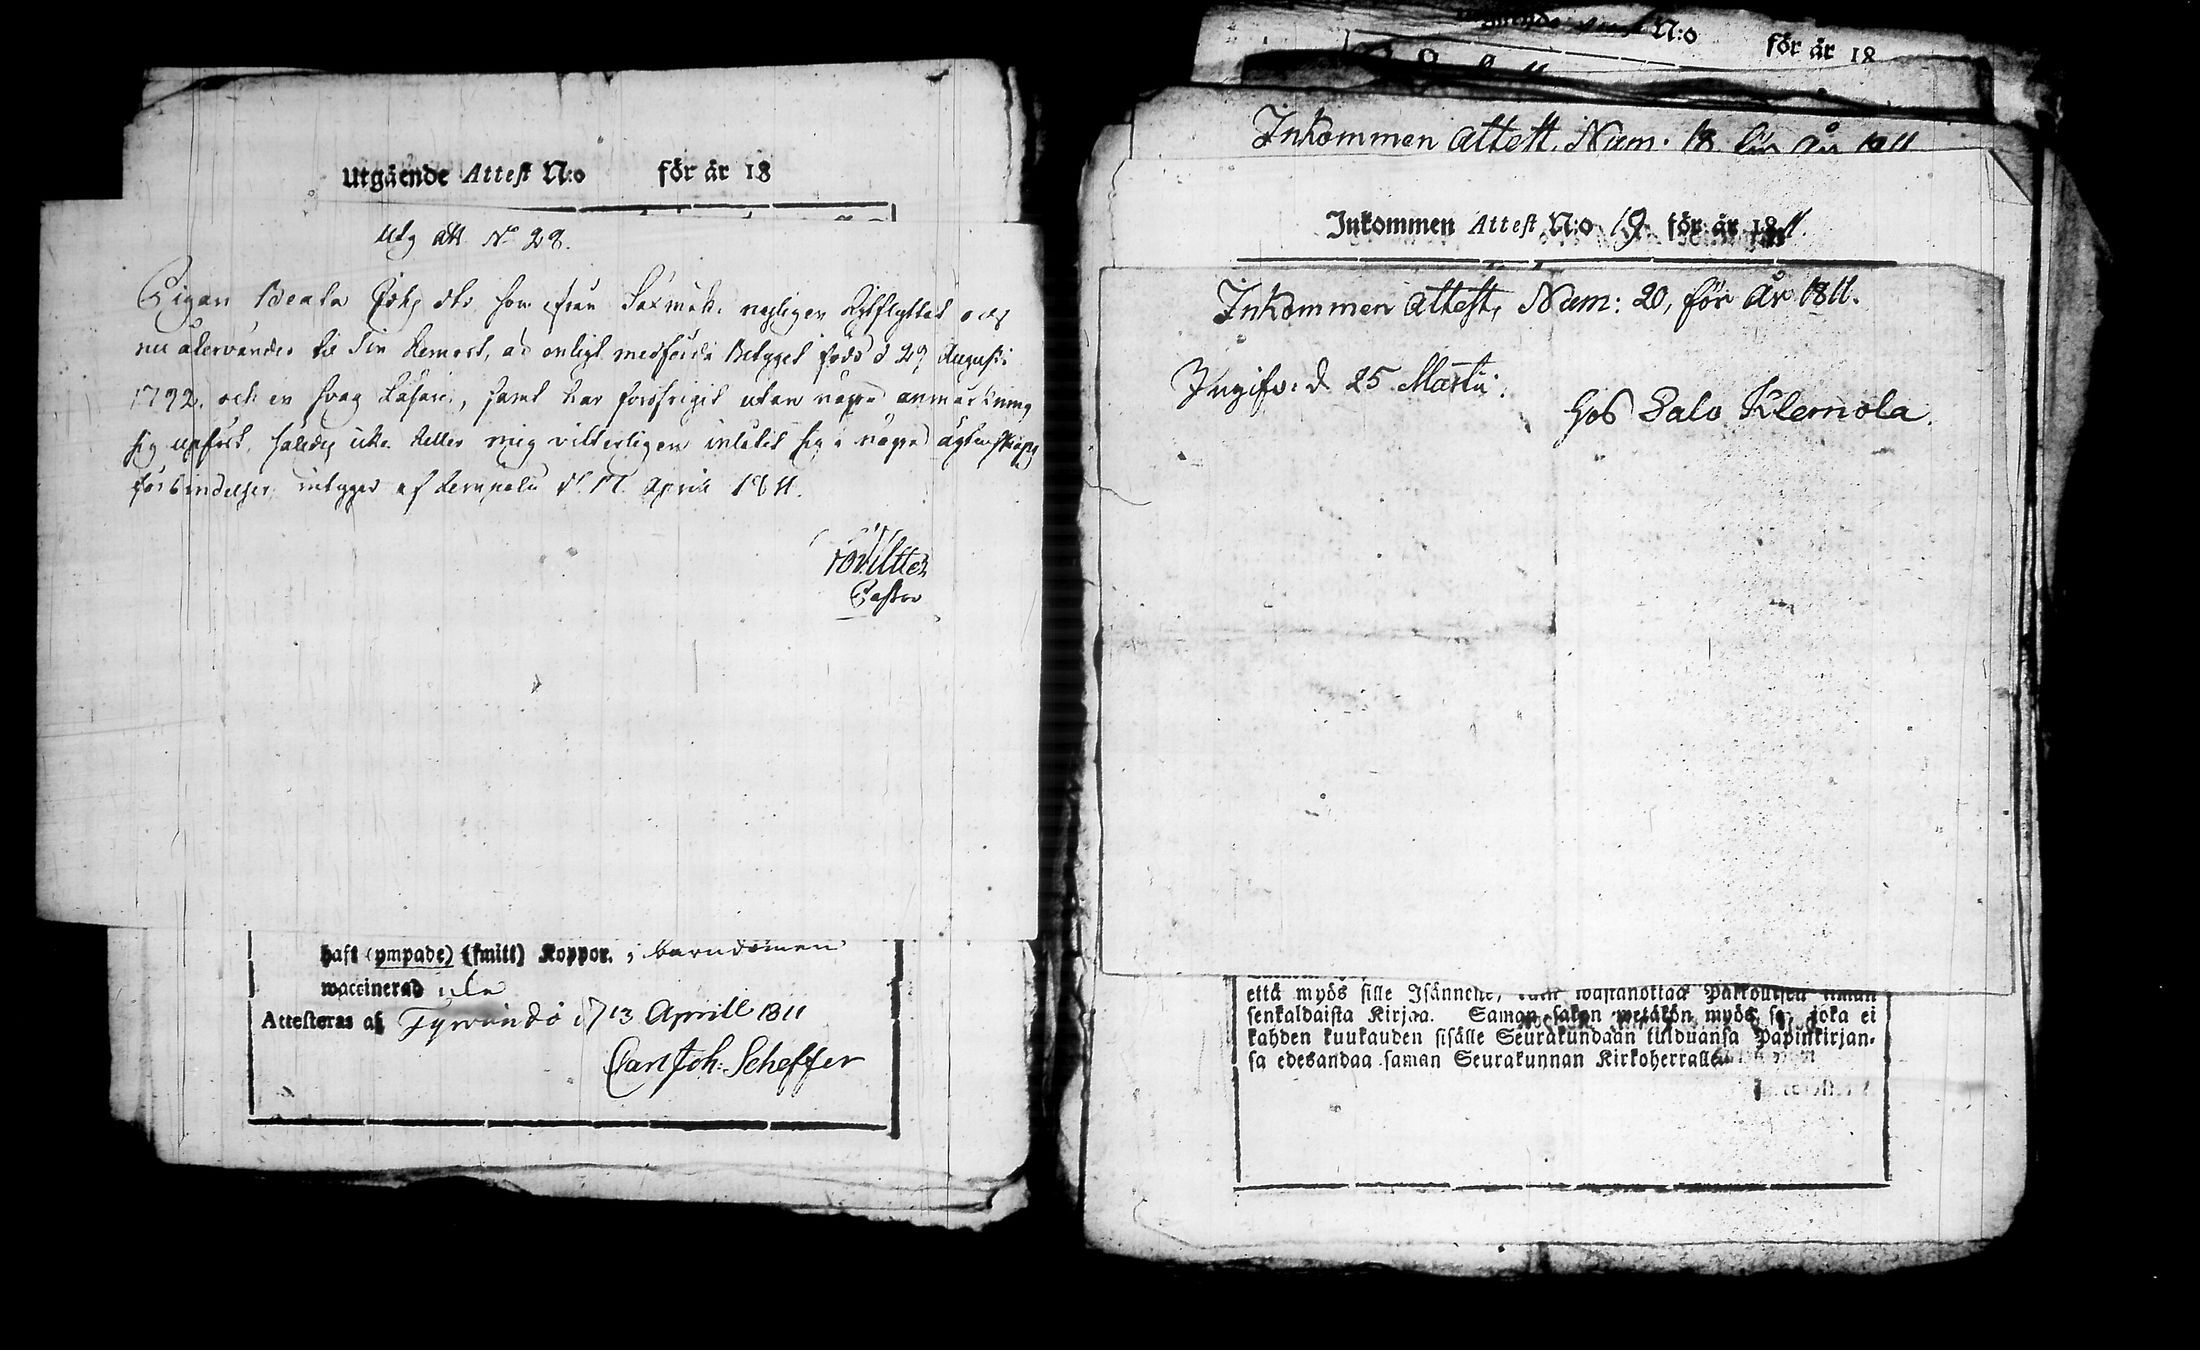 Utgående Attest N:o för år 18
Utg att. No 28.
Pigan Beata Johs dtr som från Saxmäki nyligen hitflyttat och
nu återvänder til sin hemort, är enligt medförda Betyget född d 29 Augusti
1792, och en svag Läsare, samt har för öfrigit utan någon anmärkning
sig upfört, således icke heller mig vitterligen inlåtit sig i någon ägtenskaps
förbindelser, intygas af Lempälä d. 17. April 1811.
Pastor
haft (ympade) (smitt) Koppor. i barndomen
waccinerad
Attesteras af Tyrwändö d 13 Aprill 1811
Carl Joh. Scheffer
N:o för år 18
Inkommen attest, Num. 18 för År 1811
Inkommen Attest N:o 19 för år 1811.
Inkommen attest, Num: 20, för År 1811.
Ingifv: d. 25 Martii.
hos Salo Klemola.
että myös sille Isännelle,
senkaldaista Kirjaa. Saman sakon wetäkön myös se, joka ei
kahden kuukauden sisälle Seurakundaan tulduansa Papinkirjan-
sa edesandaa saman Seurakunnan Kirkoherralle